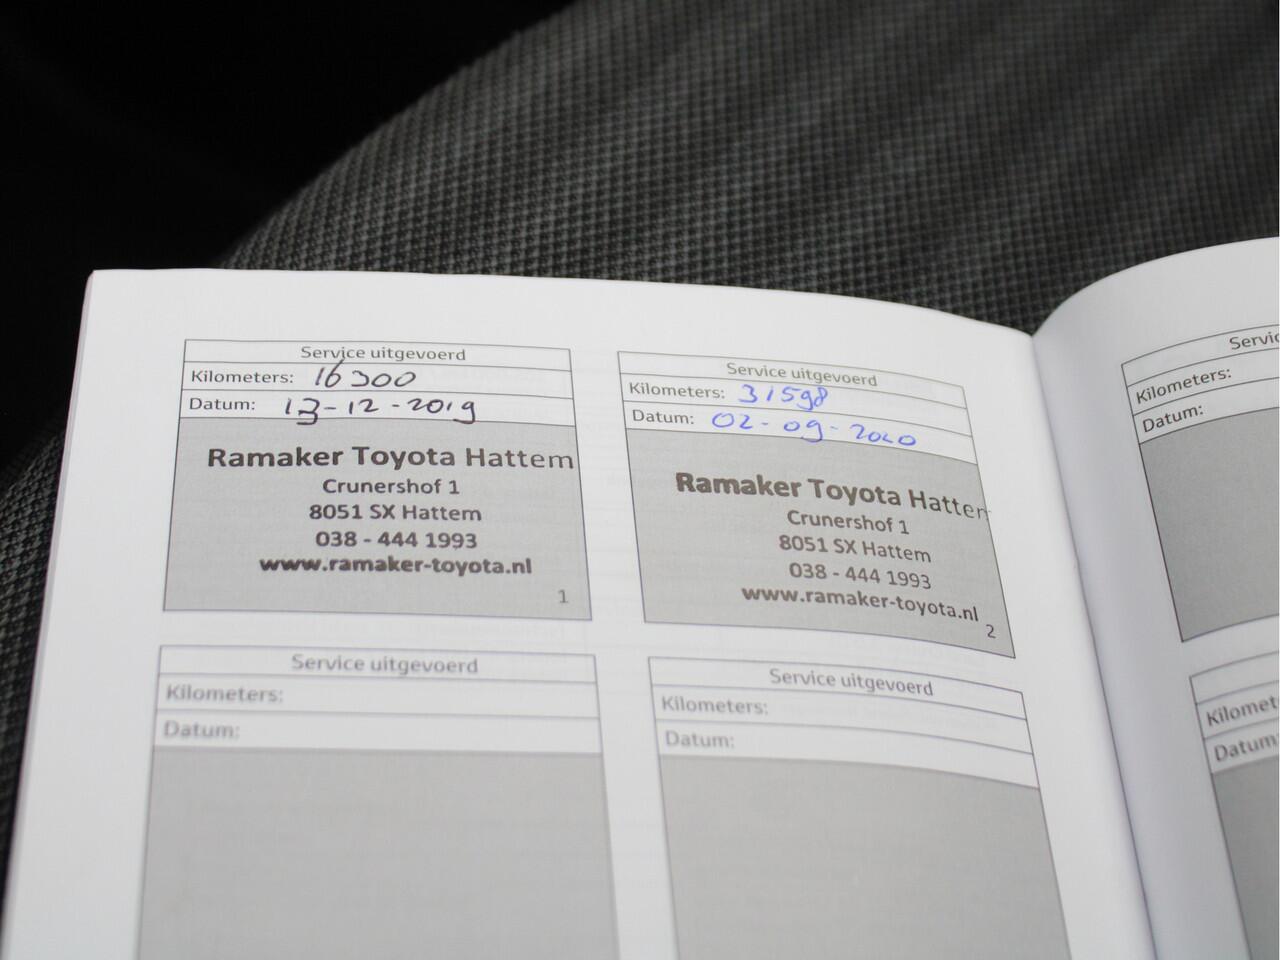 Service uitgevoerd
Kilometers: 16300
Datum: 13-12-2019
Ramaker Toyota Hattem
Crunershof 1
8051 SX Hattem
038 - 444 1993
www.ramaker-toyota.nl
1
Service uitgevoerd
Kilometers: 31598
Datum: 02-09-2020
Ramaker Toyota Hatten
Crunershof 1
8051 SX Hattem
038 - 444 1993
www.ramaker-toyota.nl
2
Service uitgevoerd
Kilometers:
Datum:
Service uitgevoerd
Kilometers:
Datum:
Servic
Kilometers:
Datum:
Kilomet
Datum